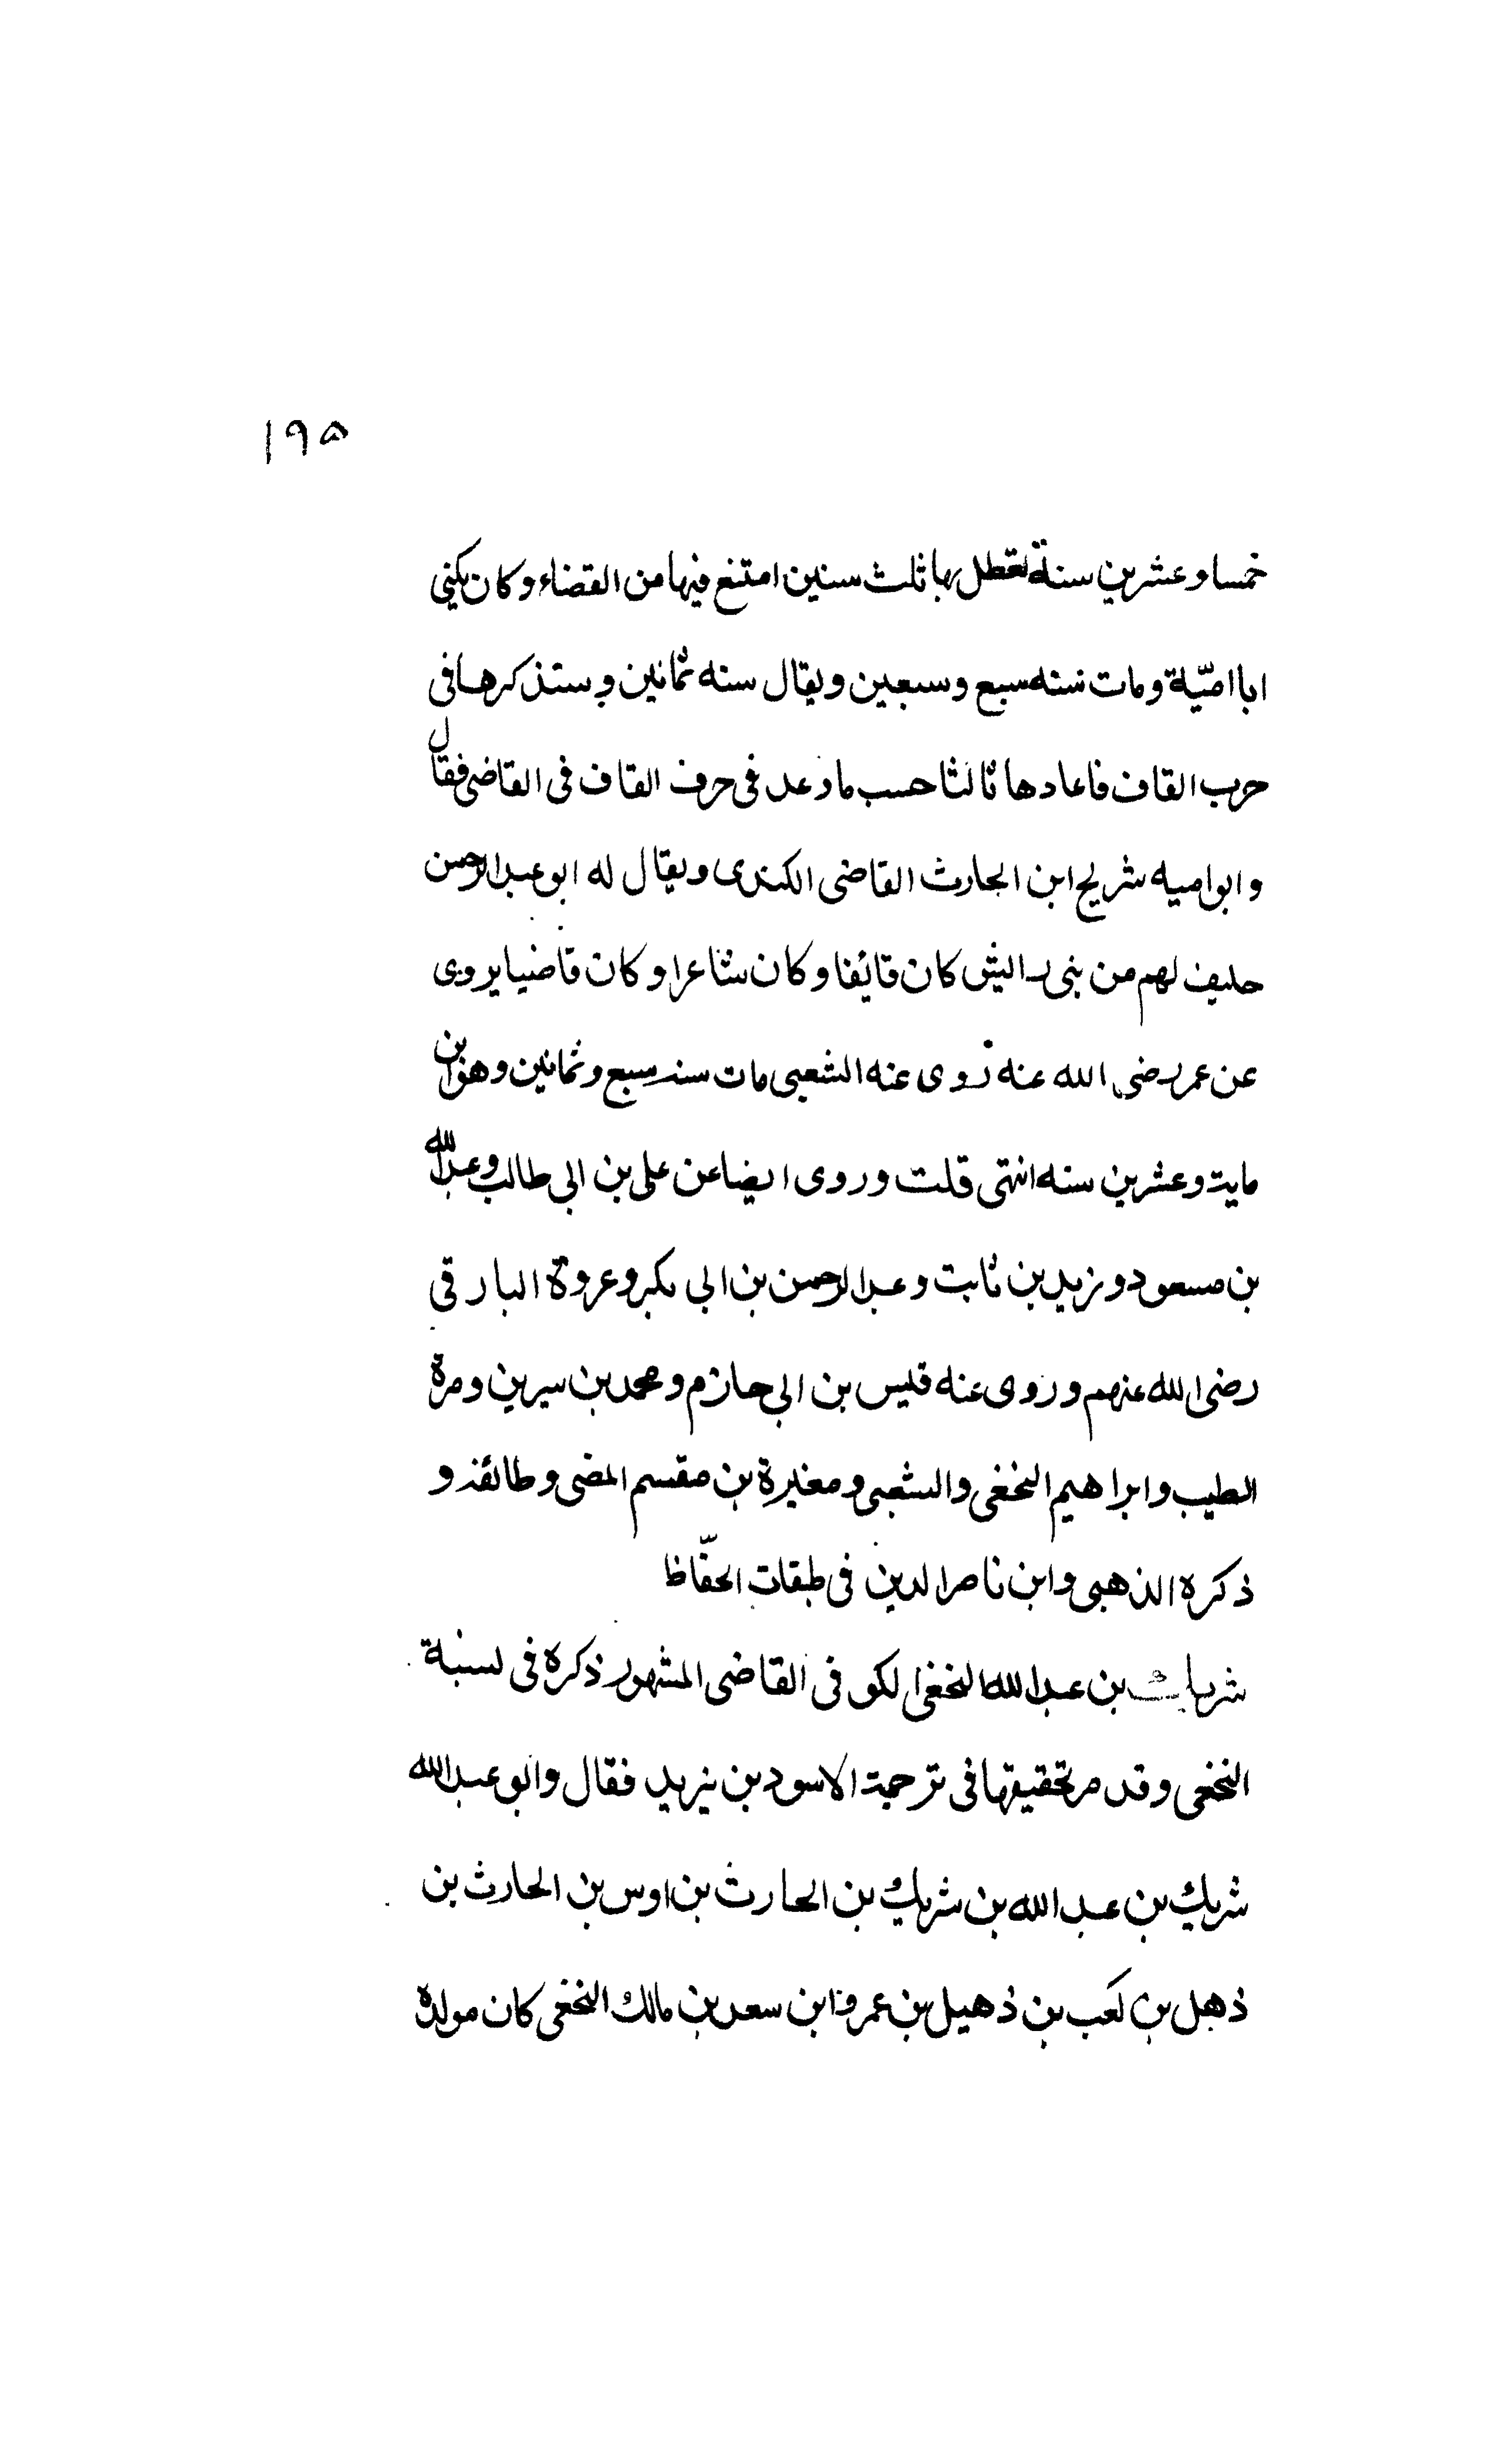 ١٩٥
خمسا وعشرين سنة تعطل بها ثلث سنين امتنع فيها من القضاء وكان يكنى
ابا اميّة ومات سنه سبع وسبعين ويقال سنه ثمانين وستذكرها فى
حرب القاف فاعادها ثالثا حسب ما وعد فى حرف القاف فى القاضى فقال
وابواميه شريح ابن الحارث القاضى الكندى ويقال له ابوعبدالرحمن
حليف لهم من بنى رايش كان قايفا وكان شاعرا وكان قاضيا يروى
عن عمر رضى الله عنه روى عنه الشعبى مات سنه سبع وثمانين وهو ابن
ماية وعشرين سنه انتهى قلت وروى ايضا عن على بن ابى طالب وعبدالله
بن مسعود وزيد بن ثابت وعبدالرحمن بن ابى بكر وعروة البارقى
رضى الله عنهم وروى عنه قيس بن ابى حازم ومحمد بن سيرين ومرة
الطيب وابراهيم النخعى والشعبى ومغيرة بن مقسم الضى وطائفة و
ذكره الذهبى وابن ناصرالدين فى طبقات الحفّاظ
شريك بن عبدالله النخعى الكوفى القاضى المشهور ذكره فى نسبة
النخعى وقد مر تحقيقها فى ترجمة الاسود بن يزيد فقال وابو عبدالله
شريك بن عبدالله بن شريك بن الحارث بن اوس بن الحارث بن
ذهل بن كعب بن ذهيل بن عمرو ابن سعد بن مالك النخعى كان مولده